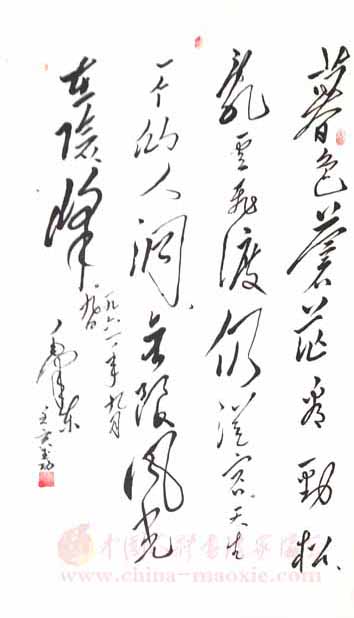 暮色蒼茫看勁松
亂雲飛渡仍從容天生
一个仙人洞無限風光
在險峰
一九六一年九月
九日
毛澤东
www.china-maoxie.com